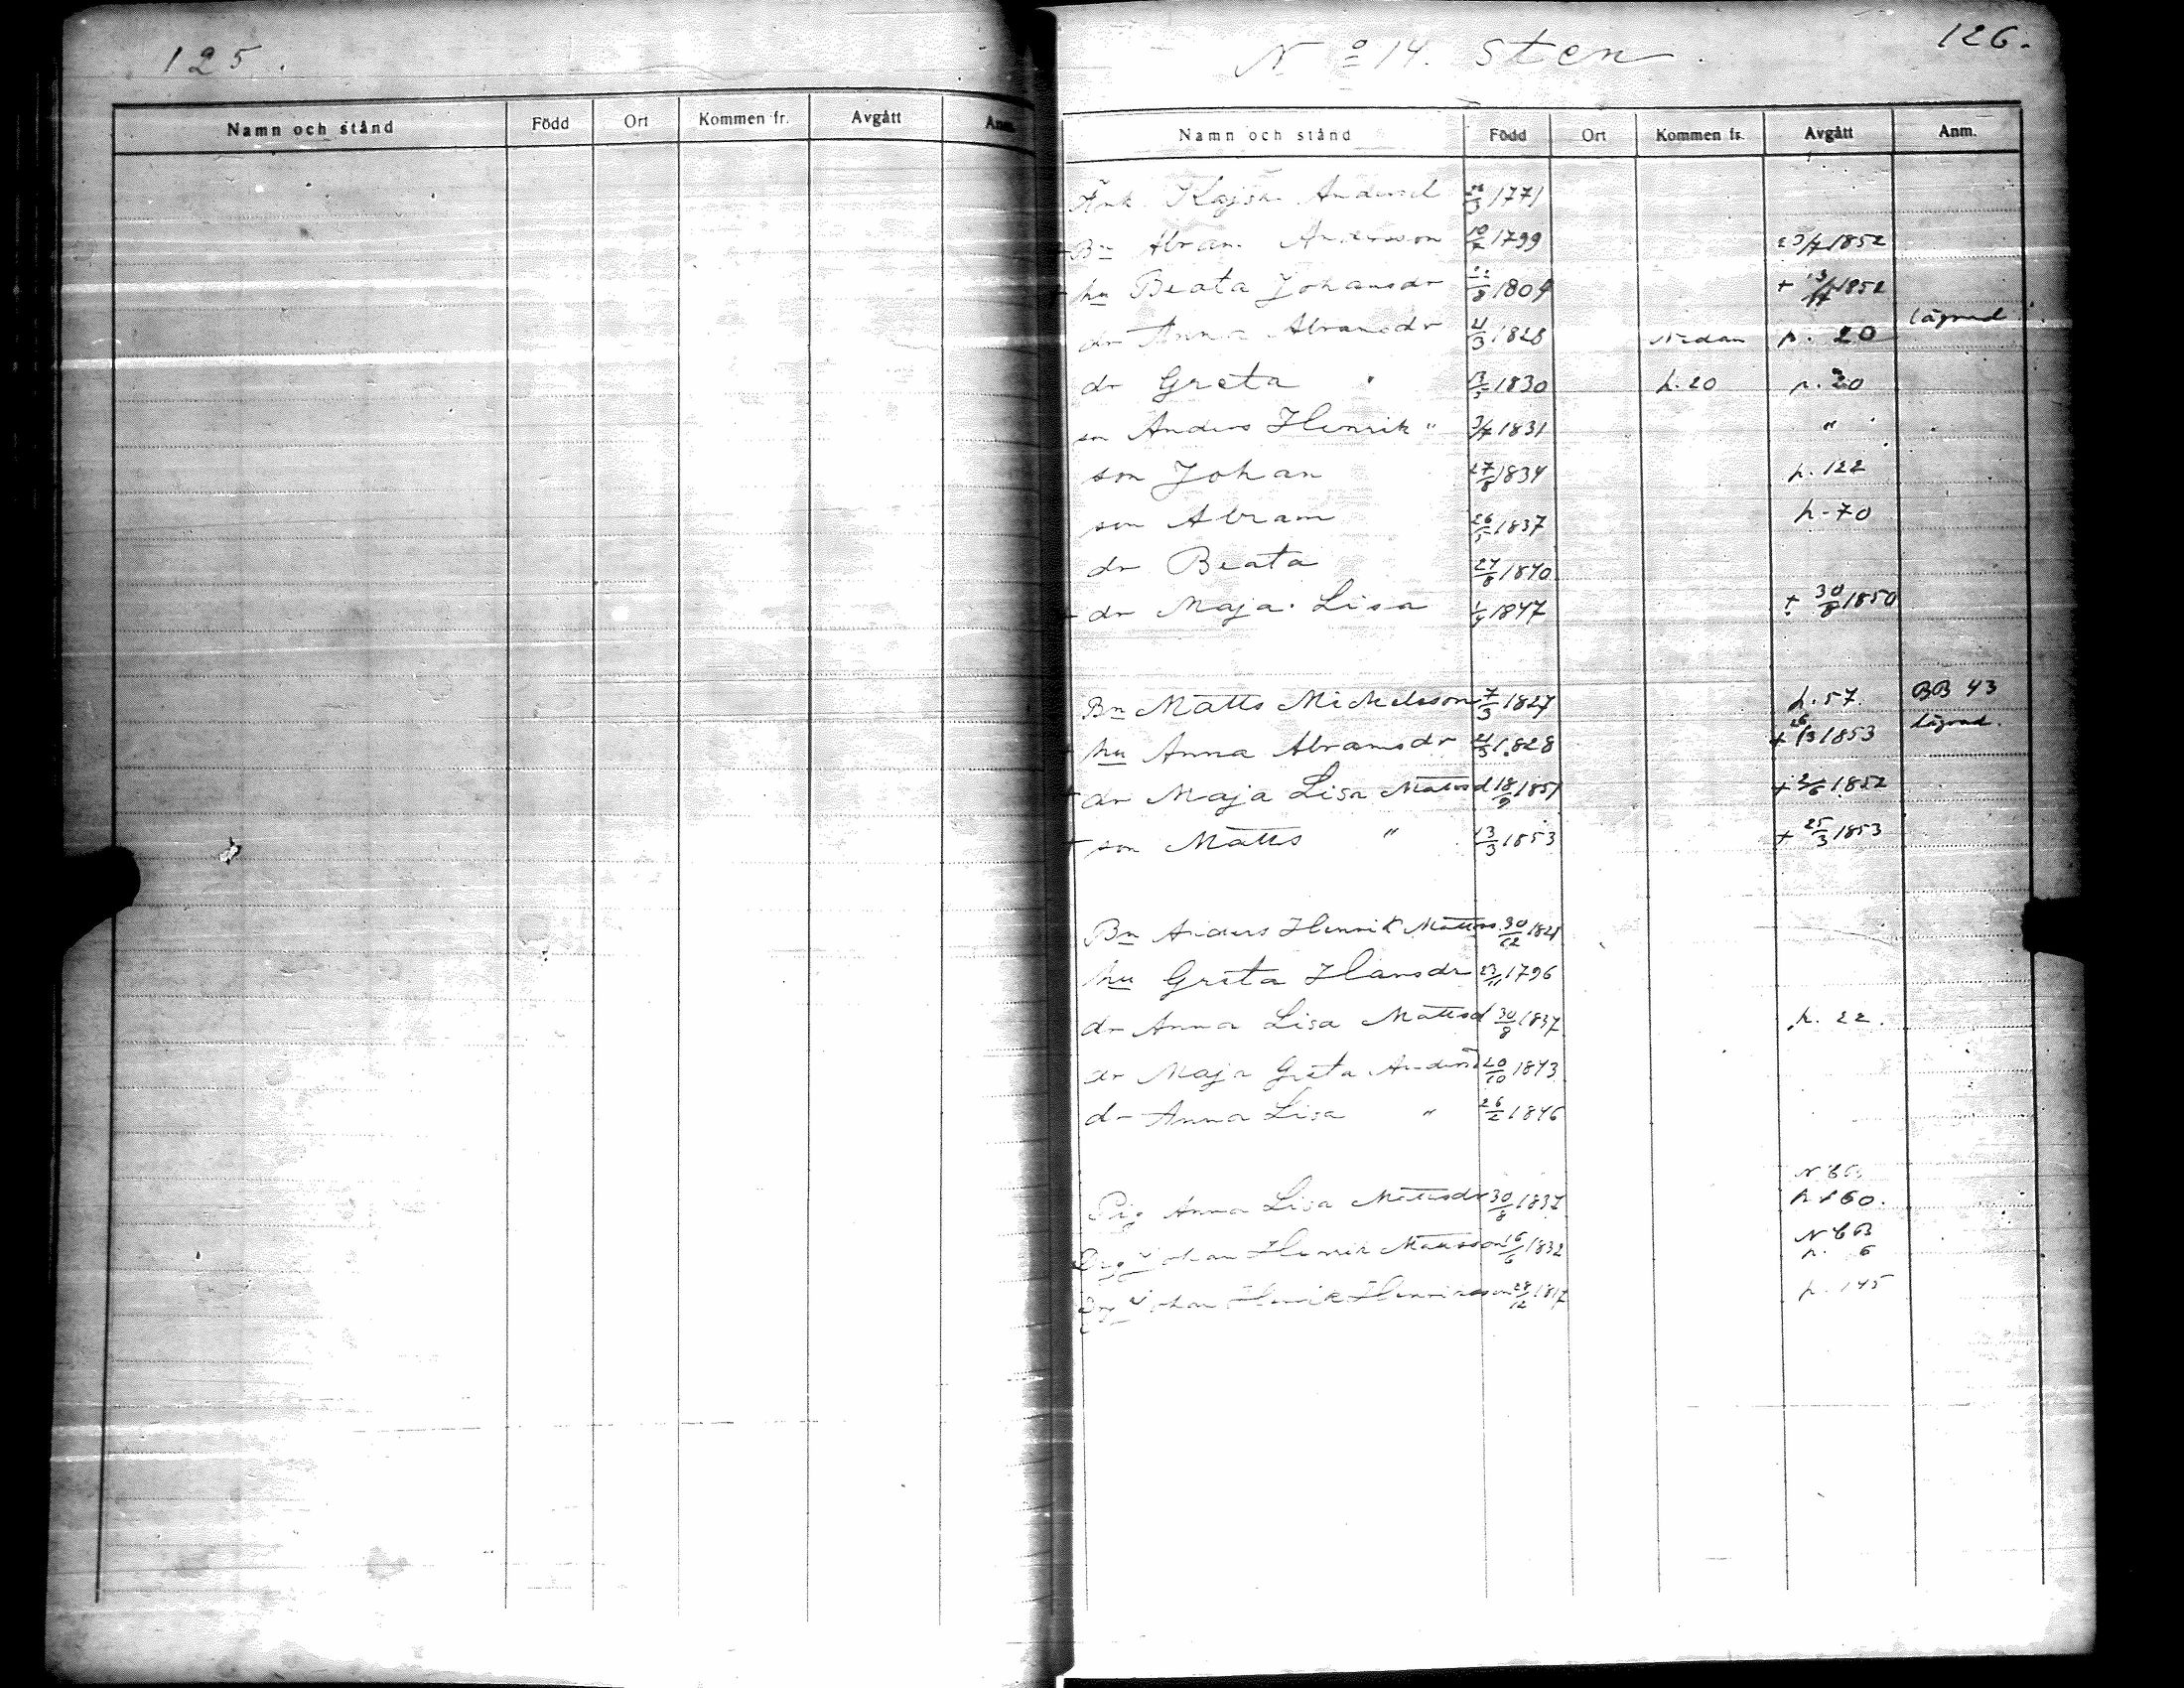 125.
Namn och stånd Född Ort Kommen fr. Avgått Anm.
126.
No 14. Sten.
Namn och stånd Född Ort Kommen fr. Avgått Anm.
Änk. Kajsa Andersd /3 1771
+ Bn Abram Andersson 10/7 1799 23/7 1852
+ hu Beata Johansdr /8 1804 + 1852
dr Anna Abramsdr 21/3 1828 Nedan p. 20 lägrad
dr Greta " 13/5 1830 p. 20 p. 20
son Anders Henrik " 3/7 1831 "
son Johan 27/8 1834 p. 122
son Abram 26/5 1837 p. 70
dr Beata 27/8 1840
+ dr Maja Lisa 1847 + 30/8 1850
Bn Matts Mickelsson 7/3 1827 p. 57. BB 43
+ hu Anna Abramsdr 21/3 1828 + 26/3 1853 lägrad.
+ dr Maja Lisa Mattsd 18/9 1851 + 2/6 1852
+ son Matts " 13/3 1853 + 25/3 1853
Bn Anders Henrik Mattss. 30/12 1821
hu Greta Hansdr 23/11 1796
dr Anna Lisa Mattsd 30/8 1837 p. 22.
dr Maja Greta Andersd 20/10 1843
dr Anna Lisa " 26/2 1846
N C B
Pig Anna Lisa Mattsdr 30/8 1837 p. 160.
N C B
Drg Johan Henrik Mattsson 16/6 1832 p. 6
Drg Johan Henrik Henriksson 28/12 1817 p. 145